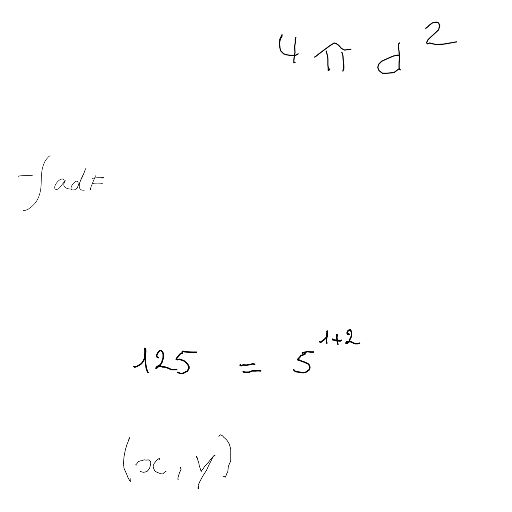 4πd²
-∫adF
125 = 5¹⁺²
(x, y)